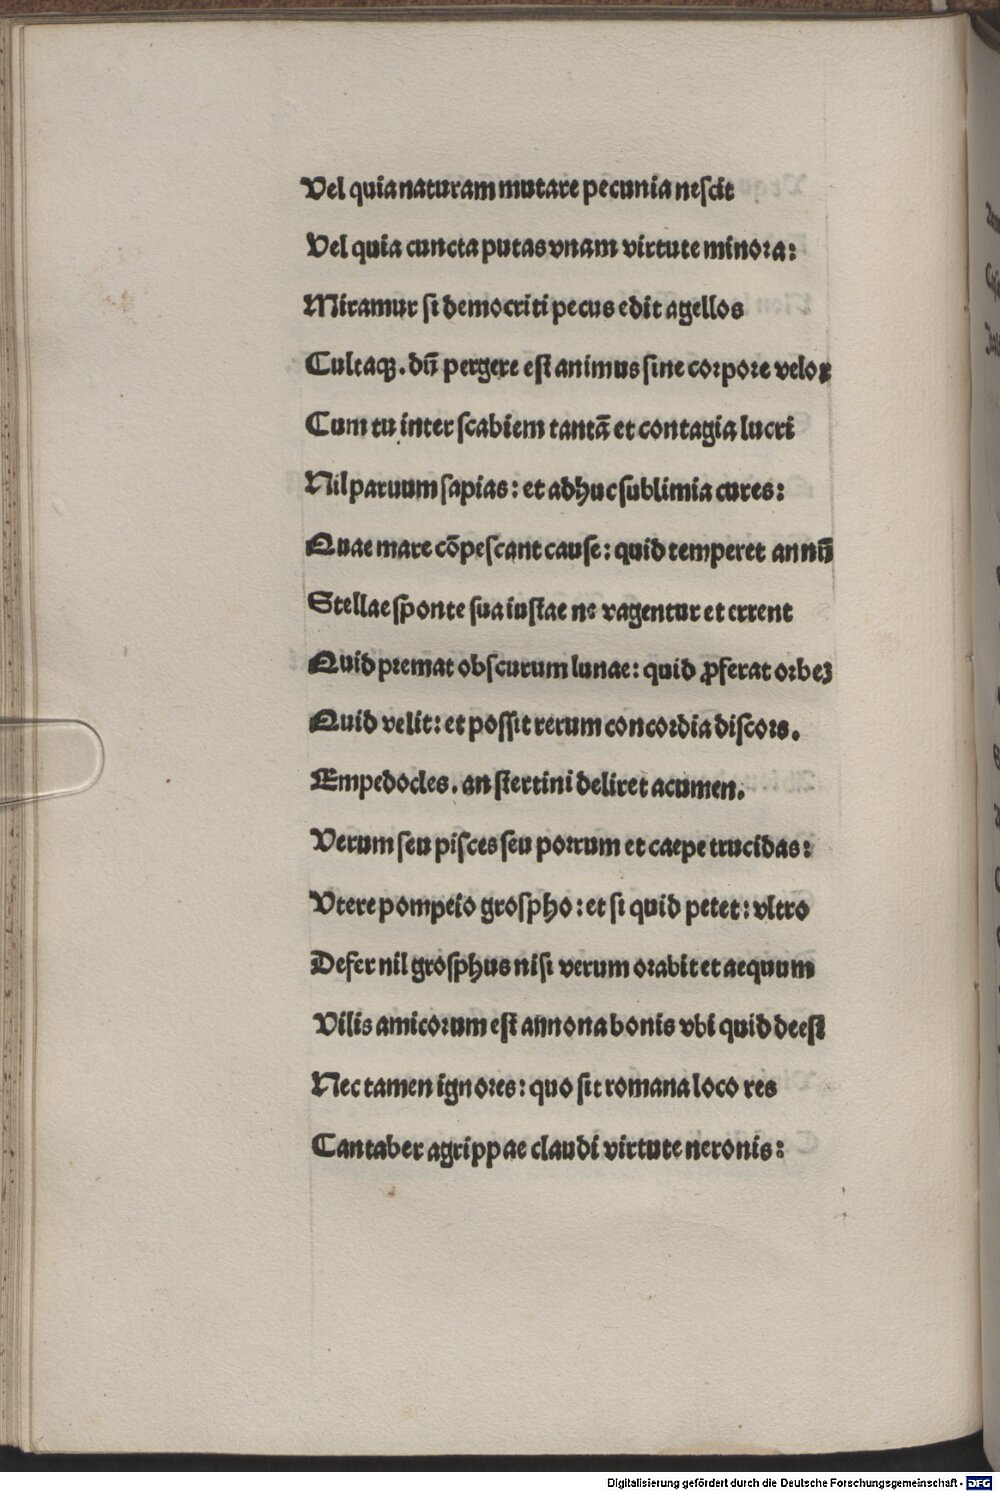 Vel quia naturam mutare pecunia neſcit
Vel quia cuncta putas vnam virtute minora:
Miramur ſi democriti pecus edit agellos
Cultaqꝫ. dū pergere eſt animus ſine corpore velox
Cum tu inter ſcabiem tantã et contagia lucri
Nil paruum ſapias: et adhuc ſublimia cures:
Quae mare cõpeſcant cauſe: quid temperet annū
Stellae ſponte ſua iuſtae ne vagentur et errent
Quid premat obſcurum lunae: quid ꝓferat orbeꝫ
Quid velit: et poſſit rerum concordia diſcors.
Empedocles. an ſtertini deliret acumen.
Verum ſeu piſces ſeu porrum et caepe trucidas:
Vtere pompeio groſpho: et ſi quid petet: vltro
Defer nil groſphus niſi verum orabit et aequum
Vilis amicorum eſt annona bonis vbi quid deeſt
Nec tamen ignores: quo ſit romana loco res
Cantaber agrippae claudi virtute neronis:
Digitalisierung gefördert durch die Deutsche Forschungsgemeinschaft - DFG